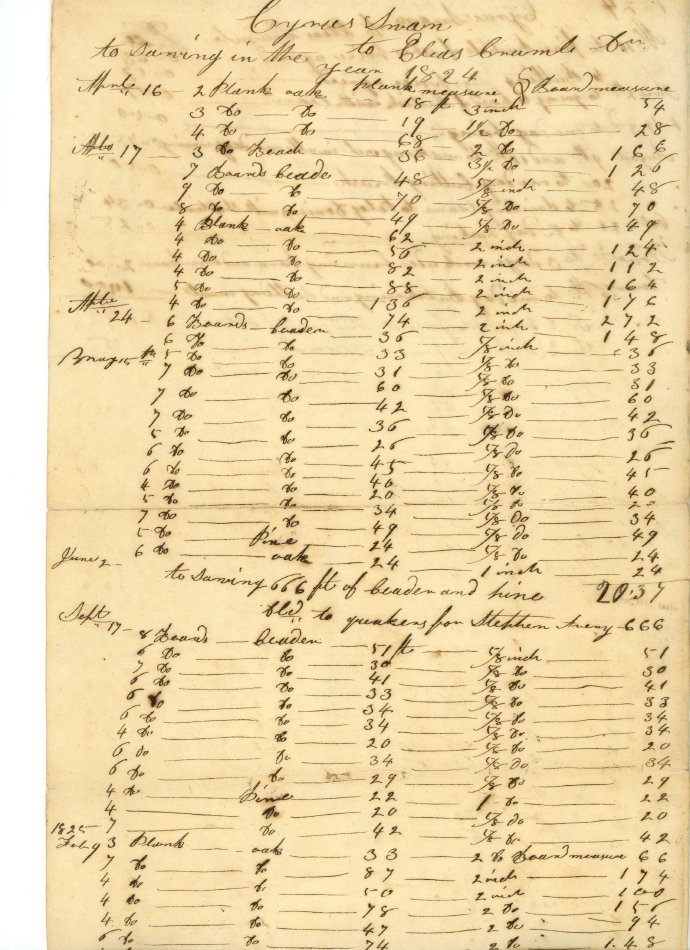 Cyrus Swan
to Elias Crumb Dr.
to Sawing in the year 1824
plank measure § Board measure
April 16 - 2 Plank oak 18 ft 3 inch 54
3 Do Do 19 1 1/2 Do 28
4 Do Do 68 2 Do
17 - 3 Do Beach 36 3 1/2 Do 126
7 Boards beaden 48 5/8 inch 48
9 Do Do 70 5/8 Do 70
8 Do Do 49 5/8 Do 49
4 Plank oak 62 2 inch 124
4 Do Do 56 2 inch 112
4 Do Do 82 2 inch 164
4 Do Do 88 2 inch 176
5 Do Do 136 2 inch 272
24 4 Do Do 74 2 inch 148
6 Boards beaden 36 5/8 inch 36
6 Do Do 33 5/8 Do 33
5 Do Do 31 5/8 Do 31
7 Do Do 60 5/8 Do 60
7 Do Do 42 5/8 Do 42
7 Do Do 36 5/8 Do 36
5 Do Do 26 5/8 Do 26
6 Do Do 45 5/8 Do 45
6 Do Do 40 5/8 Do 40
4 Do Do 20 5/8 Do 20
5 Do Do 34 5/8 Do 34
7 Do Do 49 5/8 Do 49
5 Do Pine 24 5/8 Do 24
June 2 - 6 Do oak 24 1 inch 24
to Sawing 666 ft of beaden and pine 2037
to quakers for Stephen Avery 666
Sept 17 - 8 Boards beaden 51 ft 5/8 inch 51
6 Do Do 30 5/8 Do 30
7 Do Do 41 5/8 Do 41
6 Do Do 33 5/8 Do 33
6 Do Do 34 5/8 Do 34
6 Do Do 34 5/8 Do 34
4 Do Do 20 5/8 Do 20
6 Do Do 34 5/8 Do 34
6 Do Do 29 5/8 Do 29
4 Do Pine 22 1 Do 22
4 Do 20 5/8 Do 20
1825 7 Do 42 5/8 Do 42
Feb 9 3 Plank oak 33 2 Do Board measure 66
7 Do Do 87 2 inch 174
4 Do Do 50 2 inch 100
4 Do Do 78 2 Do 156
4 Do Do 47 2 Do 94
6 Do Do 74 2 Do 148